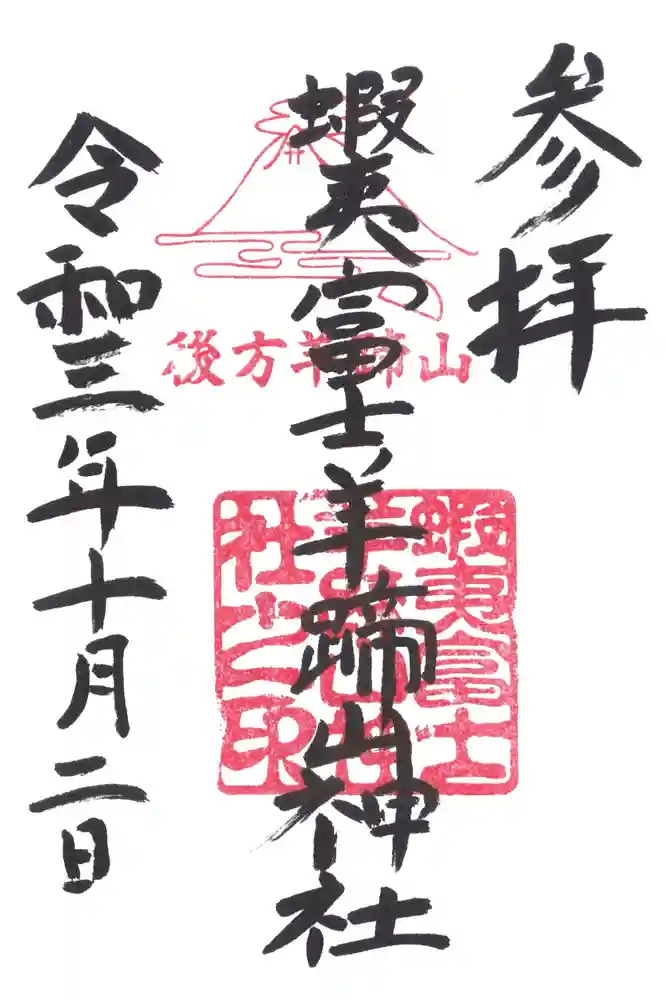 参拝
蝦夷富士羊蹄山神社
後方羊蹄山
蝦夷富士
羊蹄山神
社之印
令和三年十月二日